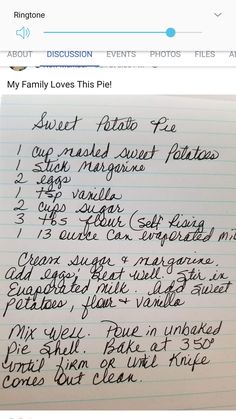 Ringtone
ABOUT DISCUSSION EVENTS PHOTOS FILES
My Family Loves This Pie!
Sweet Potato Pie
1 cup mashed sweet Potatoes
1 stick margarine
2 eggs
1 tsp vanilla
2 cups sugar
3 tbs flour (Self Rising
1 13 ounce can evaporated mi
Cream sugar & margarine.
add eggs; Beat well. Stir in
Evaporated milk. add sweet
Potatoes, flour & vanilla
Mix well. Pour in unbaked
Pie shell. Bake at 350°
until firm or until Knife
comes out clean.